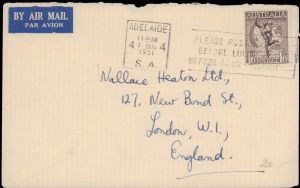 BY AIR MAIL
PAR AVION
ADELAIDE
4 4
1951
S.A.
PLEASE POST
BEFORE
BEFORE
AUSTRALIA
POSTAGE
Wallace Heaton Ltd.,
127, New Bond St.,
London, W.1.,
England.